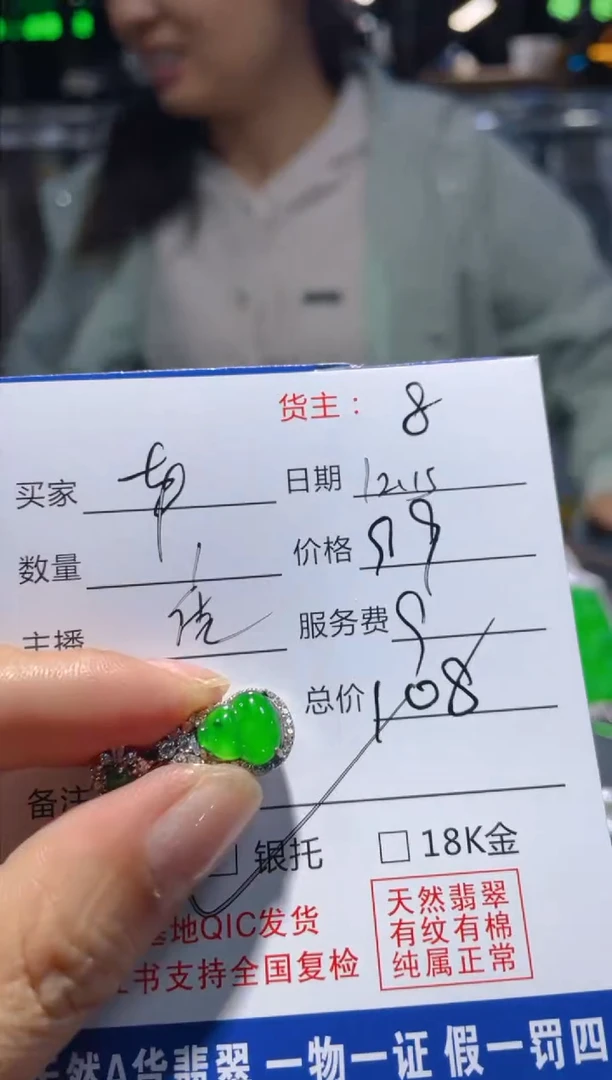 货主： 8
买家
日期 12.15
数量 1
价格 99
主播
服务费 9
总价 108
备注
银托 □ 18K金
基地QIC发货
证书支持全国复检
天然翡翠
有纹有棉
纯属正常
天然A货翡翠 一物一证 假一罚四